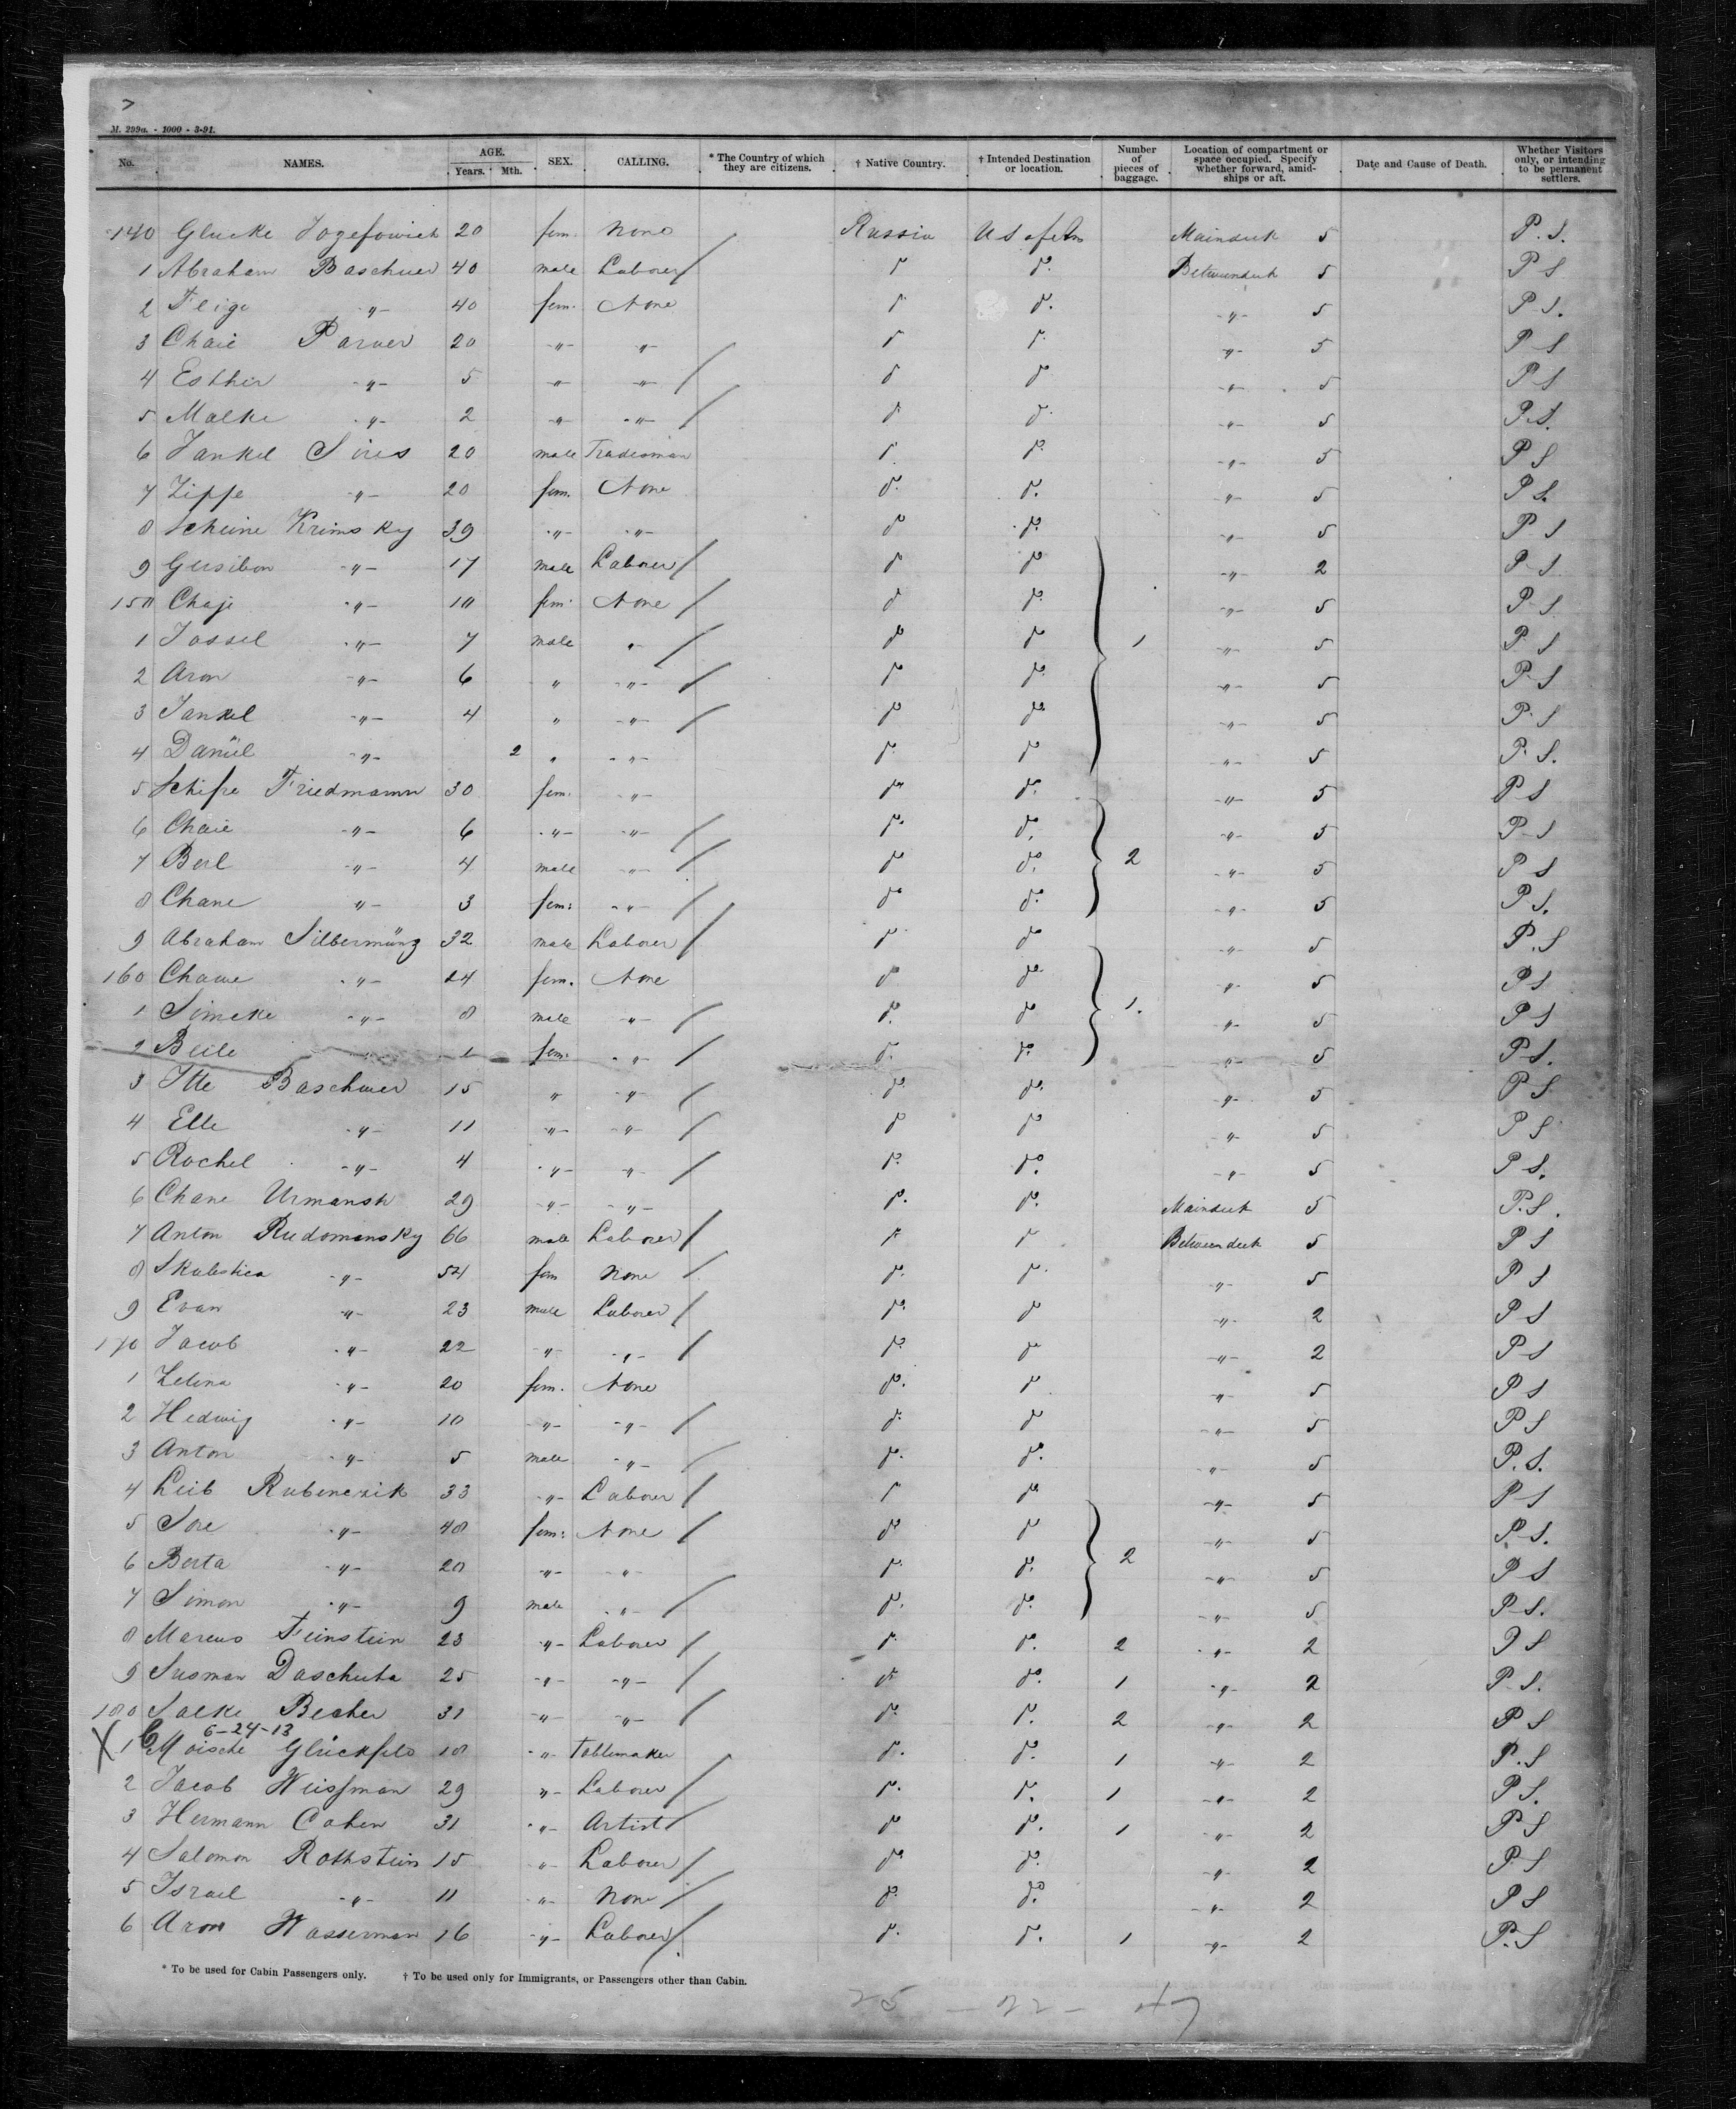 M. 299a. - 1000 - 3-91.
No. NAMES. AGE. Years. Mth. SEX. CALLING. * The Country of which they are citizens. † Native Country. † Intended Destination or location. Number of pieces of baggage. Location of compartment or space occupied. Specify whether forward, amidships or aft. Date and Cause of Death. Whether Visitors only, or intending to be permanent settlers.
140 Glucke Jozefowich 20 fem. None Russia U S of Am Maindeck 5 P. S.
1 Abraham Baschwer 40 male Laborer do do. Betweendeck 5 P S
2 Feige -"- 40 fem. None do do. -"- 5 P S.
3 Chaie Parver 20 -"- -"- do do -"- 5 P S
4 Esther -"- 5 -"- -"- do do -"- 5 P S
5 Malke -"- 2 -"- -"- do do. -"- 5 P. S.
6 Jankel Sires 20 male Tradesman do do -"- 5 P S
7 Zippe -"- 20 fem. None do. do. -"- 5 P S.
8 Scheine Krimsky 39 -"- -"- do do. -"- 5 P S
9 Gersibon -"- 17 male Laborer do do -"- 2 P S
150 Chaje -"- 10 fem. None do do. -"- 5 P S
1 Jossel -"- 7 male " do do 1 -"- 5 P S
2 Aron -"- 6 " -"- do do. -"- 5 P S
3 Jankel -"- 4 " -"- do do -"- 5 P. S
4 Daniel -"- 2 " -"- do do -"- 5 P. S.
5 Schifre Friedmann 30 fem. -"- do do. -"- 5 P S
6 Chaie -"- 6 -"- -"- do do. -"- 5 P S
7 Berl -"- 4 male -"- do do. 2 -"- 5 P S
8 Chane -"- 3 fem: -"- do do. -"- 5 P S.
9 Abraham Silbermünz 32 male Laborer do do -"- 5 P. S
160 Chawe -"- 24 fem. None do do -"- 5 P S
1 Simcke -"- 8 male -"- do. do 1. -"- 5 P S
2 Beile fem: -"- do. do. -"- 5 P S.
3 Itte Baschwer 15 " -"- do. do. -"- 5 P S
4 Elle -"- 11 -"- -"- do do -"- 5 P S
5 Rochel -"- 4 -"- -"- do. do. -"- 5 P S.
6 Chane Urmansk 29 -"- -"- do. do. Maindeck 5 P. S.
7 Anton Rudomansky 66 male Laborer do do Betweendeck 5 P S
8 -"- 54 fem None do. do. -"- 5 P S
9 Evan -"- 23 male Laborer do. do -"- 2 P S
170 Jacob -"- 22 -"- -"- do do -"- 2 P S
1 Zelina -"- 20 fem. None do. do -"- 5 P S
2 Hedwig -"- 10 -"- -"- do. do -"- 5 P S
3 Anton -"- 5 male -"- do. do. -"- 5 P. S.
4 Leib Rubenczik 33 -"- Laborer do do -"- 5 P S
5 Sore -"- 40 fem: None do do -"- 5 P. S.
6 Berta -"- 20 -"- -"- do. do. 2 -"- 5 P S
7 Simon -"- 9 male -"- do. do. -"- 5 P S.
8 Marcus Feinstein 23 -"- Laborer do. do. 2 -"- 2 P S
9 Susman Daschuta 25 -"- -"- do do. 1 -"- 2 P. S.
180 Salke Becher 31 -"- -"- do. do. 2 -"- 2 P S
X C 6-24-13
1 Moische Glückfeld 18 -"- Tablemaker do. do. 1 -"- 2 P. S
2 Jacob Weissman 29 -"- Laborer do. do. 1 -"- 2 P S.
3 Hermann Cohen 31 -"- Artist do do. 1 -"- 2 P S
4 Salomon Rothstein 15 -"- Laborer do. do. -"- 2 P S
5 Israel -"- 11 -"- None do. do. -"- 2 P S
6 Aron Wasserman 16 -"- Laborer do. do. 1 -"- 2 P. S
* To be used for Cabin Passengers only. † To be used only for Immigrants, or Passengers other than Cabin.
25 - 22 - 47